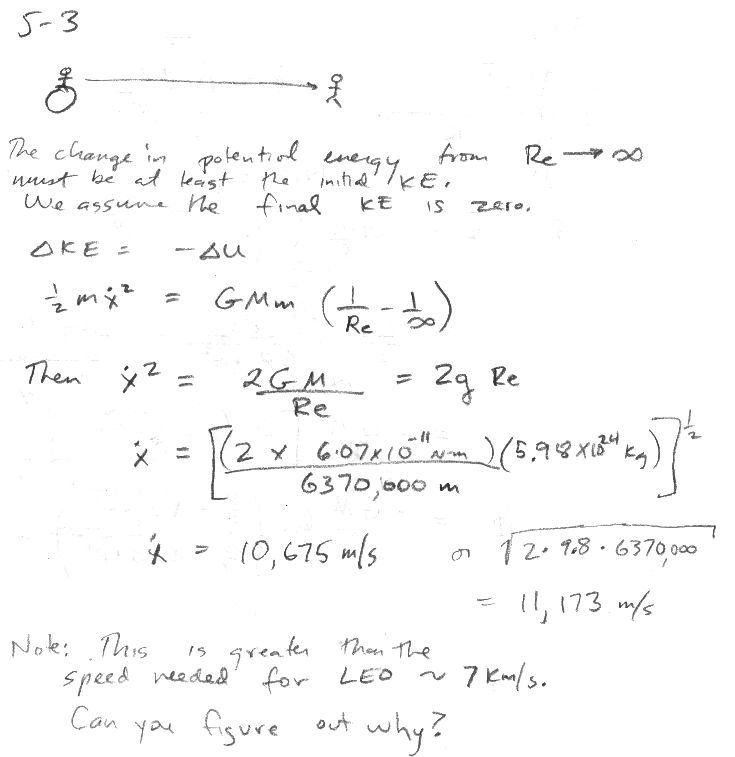 5-3
The change in potential energy from Re → ∞
must be at least the initial KE.
We assume the final KE is zero.
ΔKE = -ΔU
1/2 m ẋ² = GMm (1/Re - 1/∞)
Then ẋ² = 2GM/Re = 2g Re
ẋ = [(2 x 6.07x10⁻¹¹ N-m)(5.98x10²⁴ kg)/6370,000 m]^1/2
ẋ = 10,675 m/s or √2·9.8·6370,000
= 11,173 m/s
Note: This is greater than the
speed needed for LEO ~ 7 Km/s.
Can you figure out why?